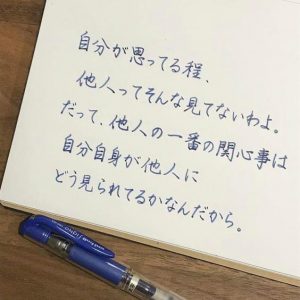 自分が思ってる程、
他人ってそんな見てないわよ。
だって、他人の一番の関心事は
自分自身が他人に
どう見られてるかなんだから。